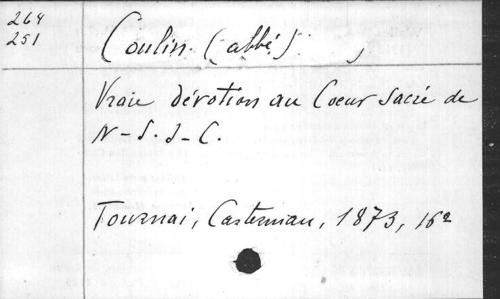 264
251
Coulin. (abbé)
Vraie dévotion au Coeur Sacré de
N-S. J-C.
Tournai, Casterman, 1873, 16º